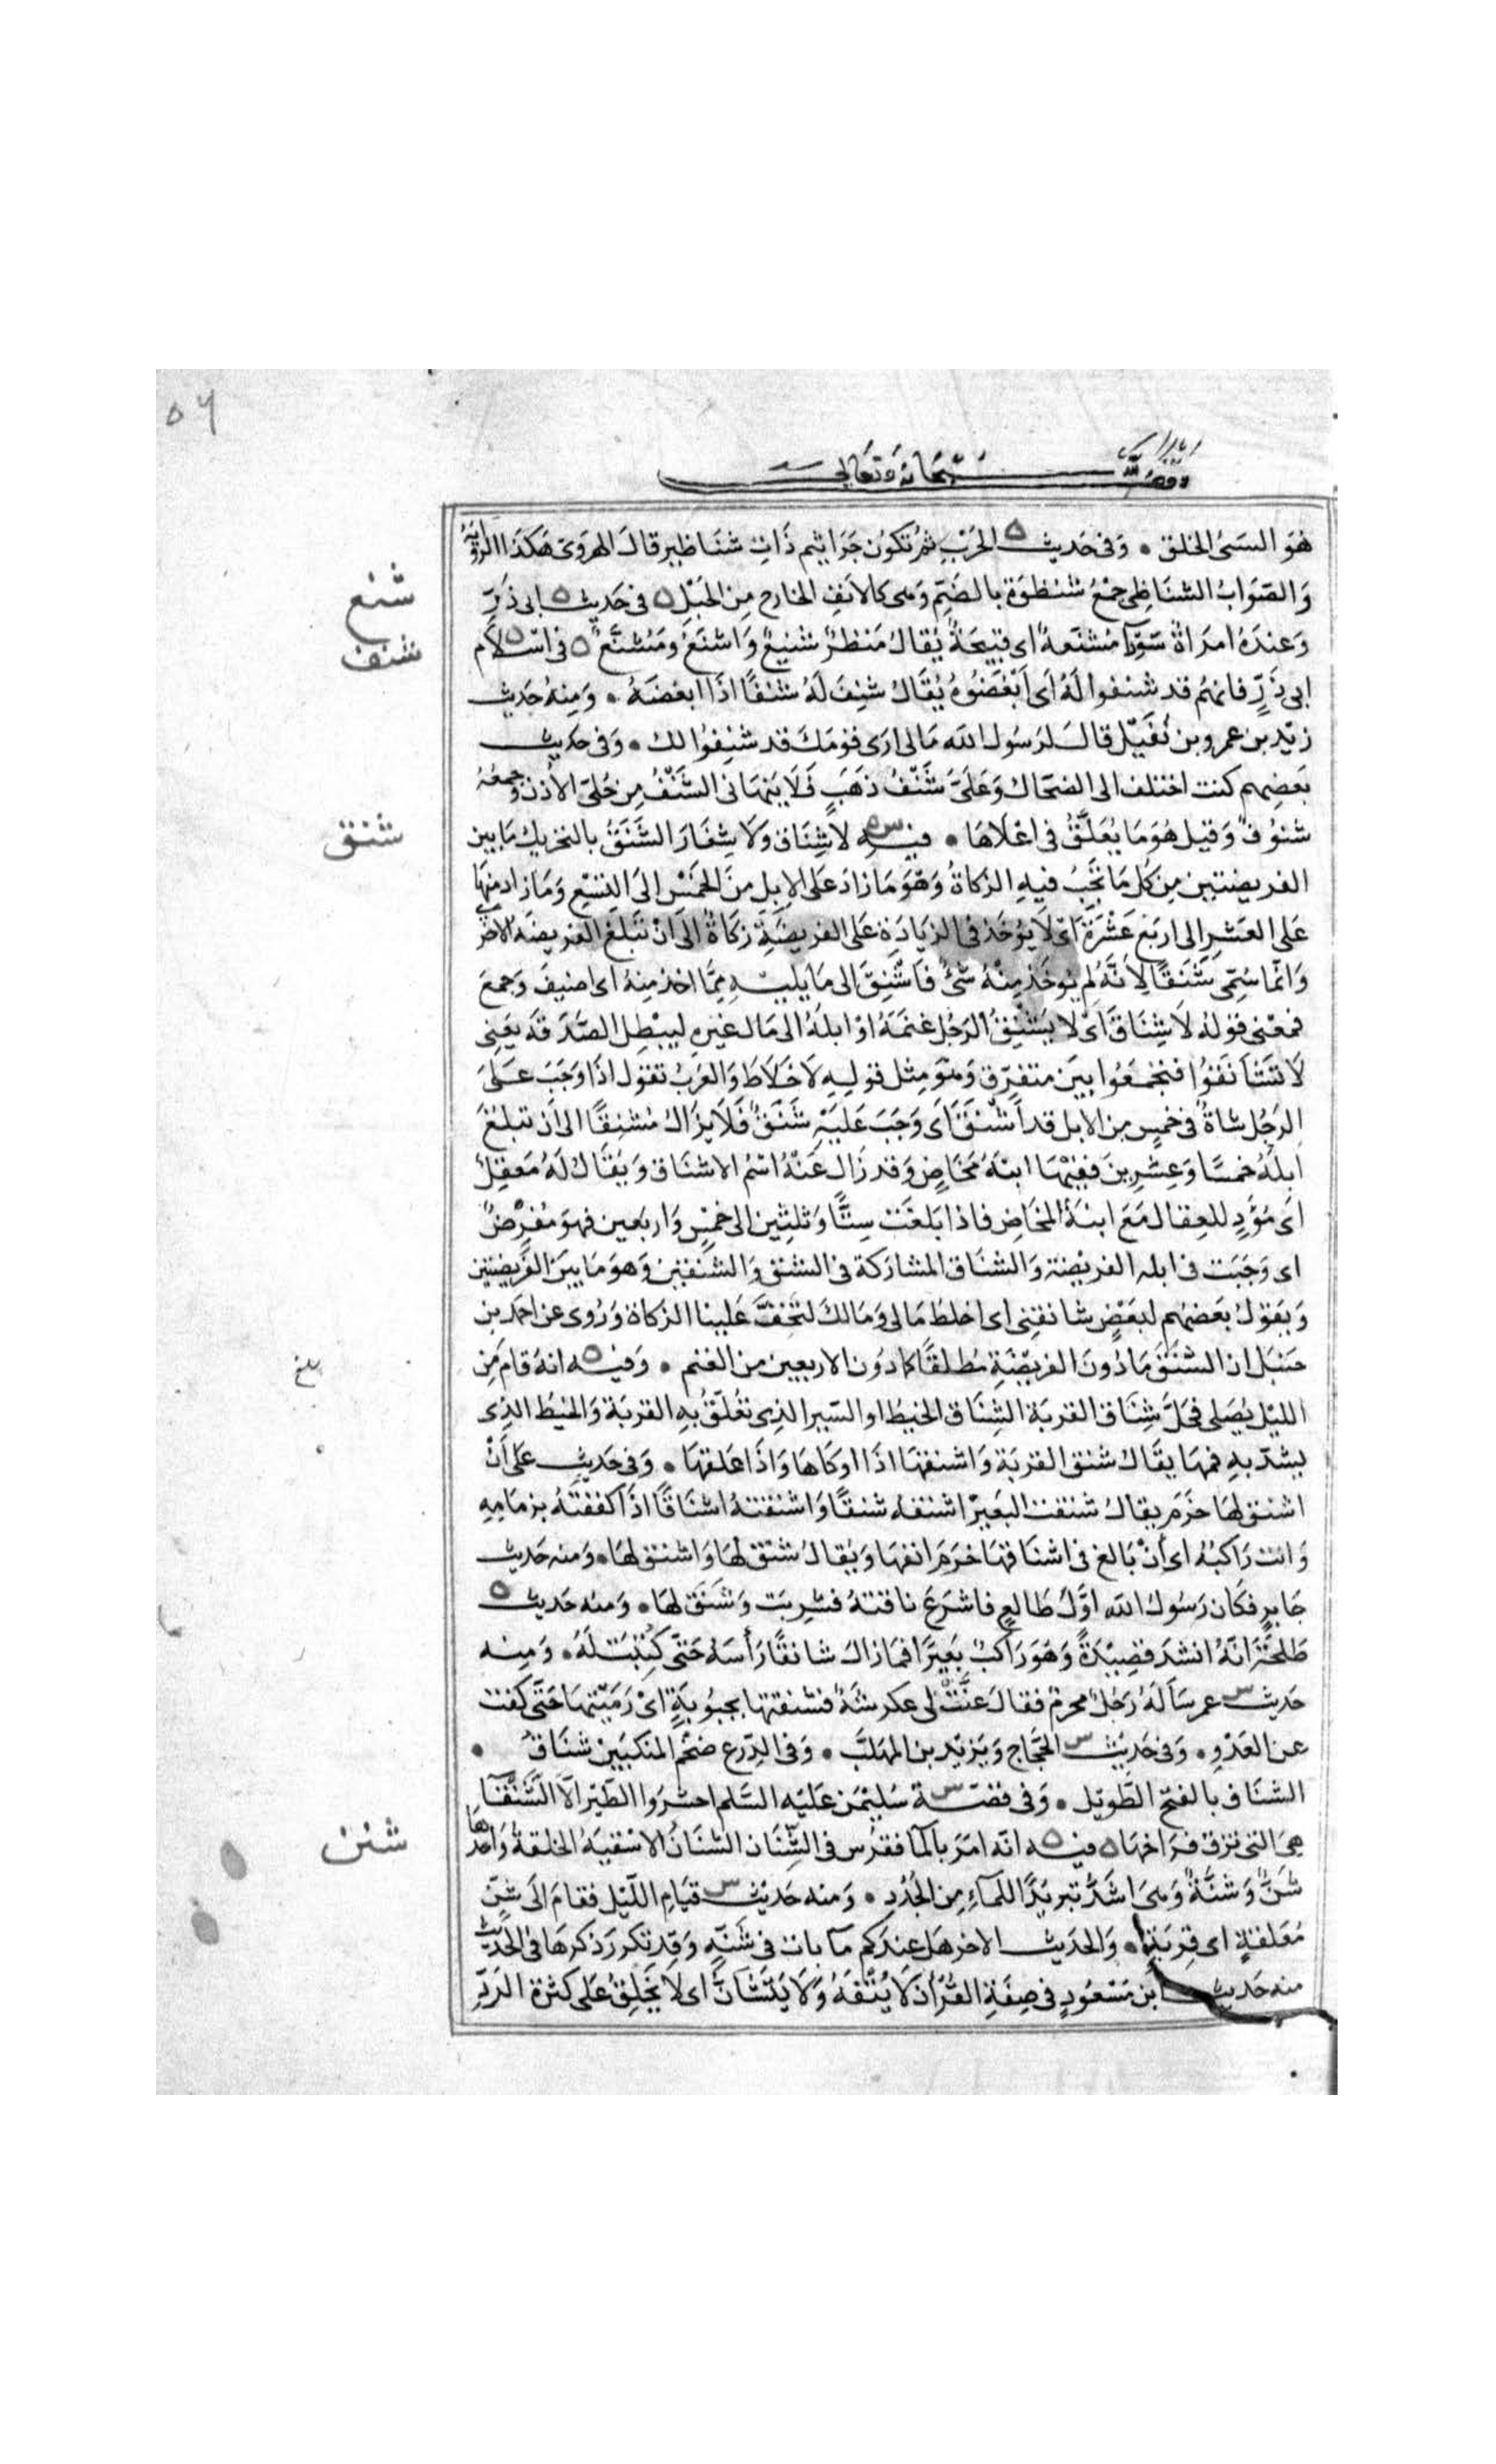 ٥٦
وقف لله سبحانه وتعالى
هُوَ السَيئُ الخلق • وَفى حَديث ه الحَرْبِ ثمَّ تكوُن جَرَاثيم ذَات شنَاظير قالَ الهَروَى هَكذَا الروَايَة
شنع
وَالصّوَابُ الشنَاظِى جمْعُ شُنظوَة بالضَمّ وَهى كالانفِ الخارج مِنَ الجَبَل ه فى حَديث ه ابى ذَرّ
وَعندَهُ امرَاةٌ سَوْدآ مُشنَّعةٌ اى قبيحَةٌ يُقالُ مَنظرٌ شنيعٌ وَاشنَعُ ومُشنَّعٌ ه فى اسْلام
شنف
ابى ذَرٍّ فانهمُ قد شنِفوا لَهُ اَى اَبْغَضُوهُ يُقَالُ شنِفَ لَهُ شنَفًا اذَا ابغضَهُ • وَمِنهُ حَديث
زيْد بن عمرو بن نُفَيْل قالَ لرَسُول الله مَالى ارَى قومَكَ قد شنِفُوا لك • وَفى حَديث
بَعضِهم كنت اختلف الى الضحّاك وَعَلىَّ شَنْفُ ذَهَبٍ فَلَا يَنهَانى الشَنْفُ مِن حُلىّ الاُذن وَجمعُهُ
شنق
شنوُفٌ وَقيل هُوَمَا يُعَلَّقُ فى اعْلَاهَا • فيه س ه لَا شِنَاق وَلَا شِغَارَ الشَنَقُ بالتحريك مَا بَين
الفريضتين مِن كُل مَا تَجِبُ فيهِ الزكاةُ وَهُوَ مَا زادَ عَلى الابل منَ الخَمْس الىَ التسْع وَمَا زادَ منهَا
عَلى العَشرِ الى اربَع عَشْرَةَ اَىْ لَا يُوخَذ فى الزيَادَة عَلى الفريضَةِ زكاةٌ الىَ انْ تَبلغَ الفريضَة الاخرَى
وَانمَا سُمّى شَنَقًا لِانَّهُ لم يُوخَذ مِنْهُ شئٌ فاُشْنِقَ الى مَا يليه ممَّا اخذ منهُ اى اضيفَ وَجمعَ
فمعْنى قوله لَا شِنَاق اَىْ لا يُشنِقُ الرَجُل غنمَهُ اوْ ابلَهُ الى مَال غيره ليبْطِل الصَّدَقة يَعنِى
لَا تشَانَقوُا فتجمَعُوا بيَن متفرّق وَهُوَ مِثل قوليه لَا خِلَاط وَالعَربُ تقول اذَا وَجَبَ عَلىَ
الرَجُل شاةٌ فى خمسٍ من الابل قد اَشْنَقَ اَى وَجَبَ عَليْهِ شَنَقٌ فَلَا يَزَالُ مُشنِقًا الى اَن تبلغَ
ابلُهُ خمسًا وَعِشرِينَ ففيْهَا ابنَة مَخَاضٍ وَقد زَال عَنْهُ اسْمُ الاشنَاق وَيُقَالُ لَهُ مُعقِلٌ
اَى مُؤَدٍّ للعِقال مَعَ ابنَة المخَاض فاذا بَلغَت ستًّا وَثلثين الى خمْسٍ وَاربَعين فهوَ مُفرِضٌ
اى وَجَبَت فى ابله الفريْضَة وَالشنَاق المشارَكة فى الشنق وَالشنقيْن وَهوَمَا بيَن الفريضَتين
وَيَقوُل بَعضهُم لبَعْضٍ شانقنى اى اخلط مَالى وَمَالكَ لتَخفَّ عَلينا الزكاة وَرُوى عن احمَد بن
بلغ
حنبَل ان الشَنَقَ مَا دُونَ الفريْضَة مُطلقًا كما دوُن الاربعين من الغنم • وَفيه ه انهُ قامَ مِنَ
الليْل يُصَلى فحَلَّ شِنَاق القربَة الشِنَاق الخيط او السّير الذِى تُعُلقُ بهِ القربَة وَالخيْطُ الذِى
يشدّ بهِ فمهَا يقَالُ شنق القربَة وَاشنقهَا اذَا اوكاهَا وَاذَا عَلقهَا • وَفى حَديث على اَنْ
اشنق لهَا خرَم يقالُ شنقت البَعيرَ اشنقه شنقًا وَاشنقتهُ اشنَاقًا اذَا كففتَهُ بزمَامِهِ
وَانت رَاكبُهُ اى اَنْ بَالغ فى اشنَاقهَا خرَمَ انفهَا وَيُقالُ شنَق لهَا وَاشنق لهَا • وَمنه حَديث
جَابرٍ فكَان رَسُولُ الله اوَّل طَالعٍ فاشرَعَ ناقتهُ فشربَت وَشنَقَ لهَا • وَمنه حَديث ه
طَلحَةَ انهُ انشدَ قصِيْدَةً وَهوَ رَاكبٌ بَعيرًا فمَا زالَ شانقًا رَأسَهُ حَتّى كتبَت لَهُ • وَمِنه
حَديث س عمر سَألَهُ رَجُلٌ محرمٌ فقالَ عنَّتْ لى عكرشَةٌ فشنقتهَا بجبوُبَةٍ اىْ رَمَيْتهَا حَتّى كفت
عن العَدْوِ • وَفى حَديْث س الحَجّاج وَيَزيْد بن المهَلّبَ • وَفى الدّرع ضخْم المنكبَيْن شنَاقٌ •
الشنَاق بالفتح الطَّويْل • وَفى قصّة س سُليْمٰن عَليْه السَّلم احشرُوا الطّيْرَ الَّا الشَّنْقَآ
شنن
هىَ التى تزق فرَاخهَا ه فيه ه انّه امَرَ بالمآ فقرّس فى الشّنَان الشنَانُ الاسْقيَة الخلقةُ وَاحدهَا
شنٌّ وَشنَّةٌ وَهىَ اشدُّ تبريْدًا للمآءِ مِن الجُدُدِ • وَمنه حَديْث س قيَام اللّيْل فقامَ الىَ شَنٍّ
مُعَلقةٍ اى قِربَةٍ • وَالحَديث الاخر هَل عندَكم مآ بات فى شَنّةٍ وَقد تكرر ذكرهَا فى الحَديْث
منه حَديث ابن مَسْعُودٍ فى صِفَةِ القُرْأن لَا يُتْفَهُ وَلَا يَتشَانُّ اى لَا يَخْلِقُ عَلى كثرة الرَدِّ